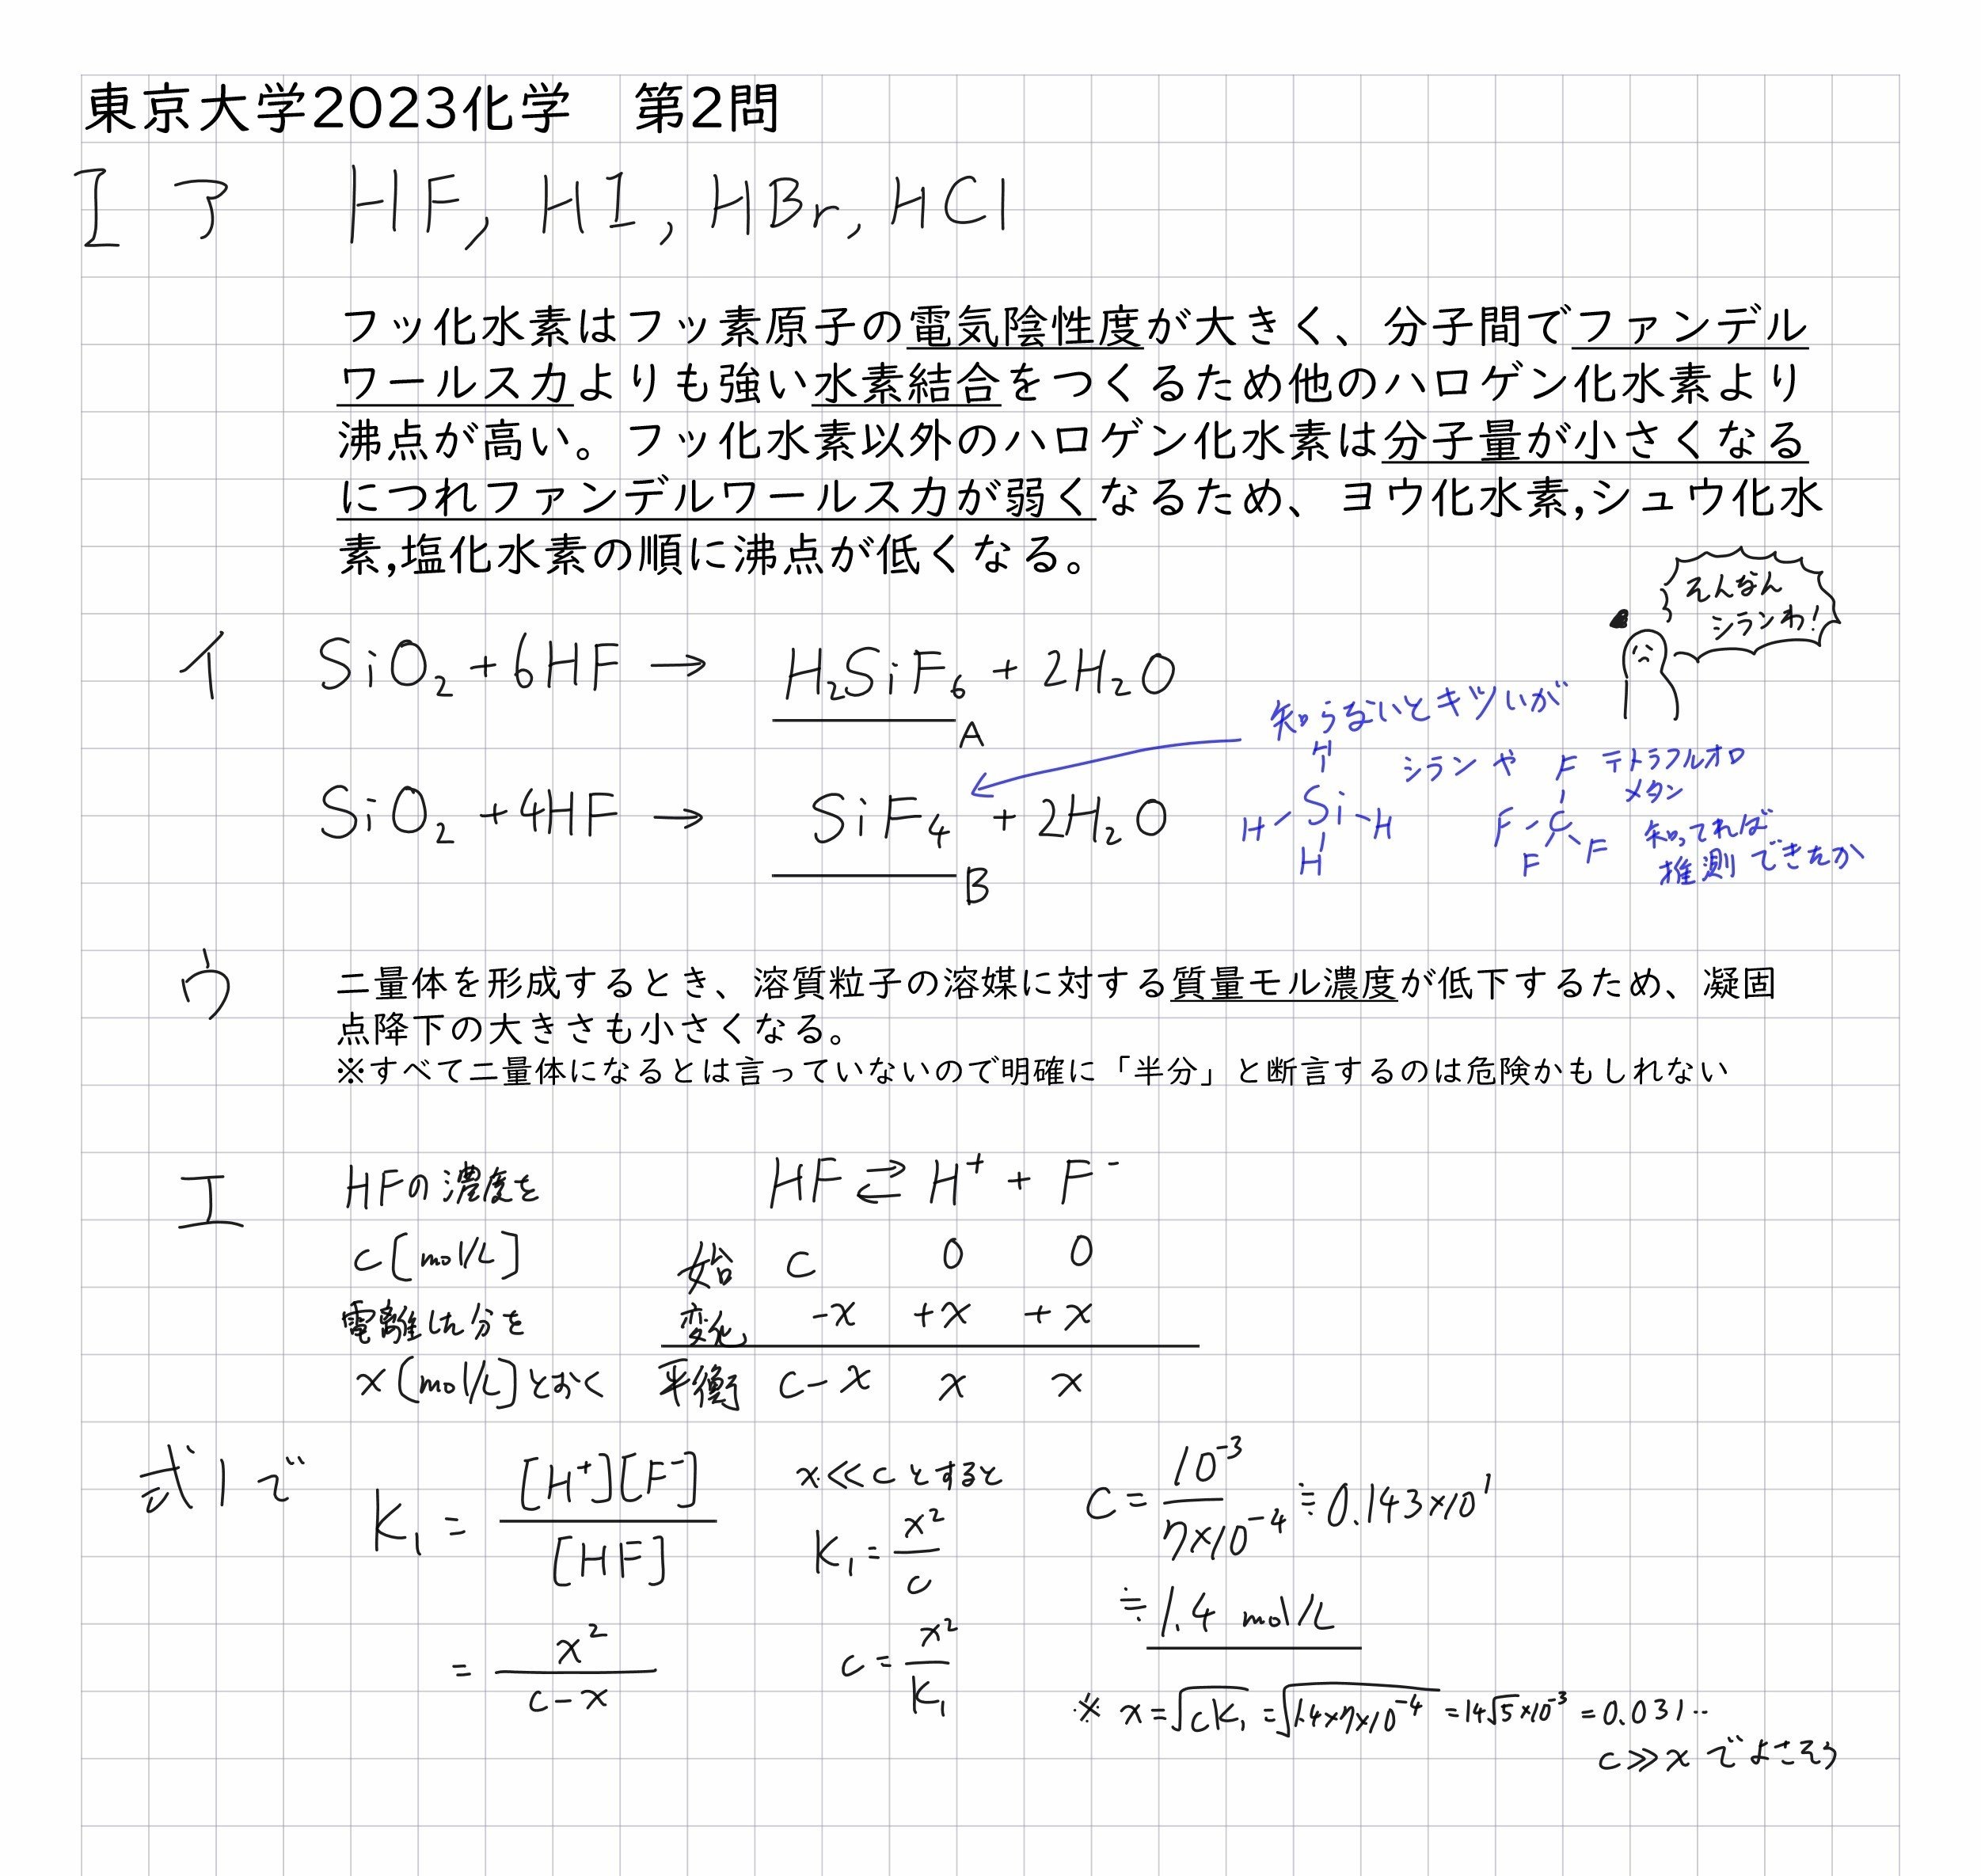 東京大学2023化学　第2問
I ア HF, HI, HBr, HCl
フッ化水素はフッ素原子の電気陰性度が大きく、分子間でファンデル
ワールス力よりも強い水素結合をつくるため他のハロゲン化水素より
沸点が高い。フッ化水素以外のハロゲン化水素は分子量が小さくなる
につれファンデルワールス力が弱くなるため、ヨウ化水素,シュウ化水
素,塩化水素の順に沸点が低くなる。
そんなん
シランわ!
イ SiO₂ + 6HF → H₂SiF₆ + 2H₂O
A
知らないとキツいが
SiO₂ + 4HF → SiF₄ + 2H₂O
B
H
H Si H
H
シランや
F
F C F
F
テトラフルオロ
メタン
知ってれば
推測できたか
ウ 二量体を形成するとき、溶質粒子の溶媒に対する質量モル濃度が低下するため、凝固
点降下の大きさも小さくなる。
※すべて二量体になるとは言っていないので明確に「半分」と断言するのは危険かもしれない
エ HFの濃度を
c[mol/L]
電離した分を
x[mol/L]とおく
HF ⇄ H⁺ + F⁻
始 c 0 0
変化 -x +x +x
平衡 c-x x x
式1で K₁ = [H⁺][F⁻] / [HF]
= x² / c-x
x≪cとすると
K₁ = x² / c
c = x² / K₁
c = 10⁻³ / 7×10⁻⁴ ≒ 0.143×10¹
≒ 1.4 mol/L
※ x = √cK₁ = √1.4×7×10⁻⁴ = 14√5×10⁻³ = 0.031‥
c≫xでよさそう